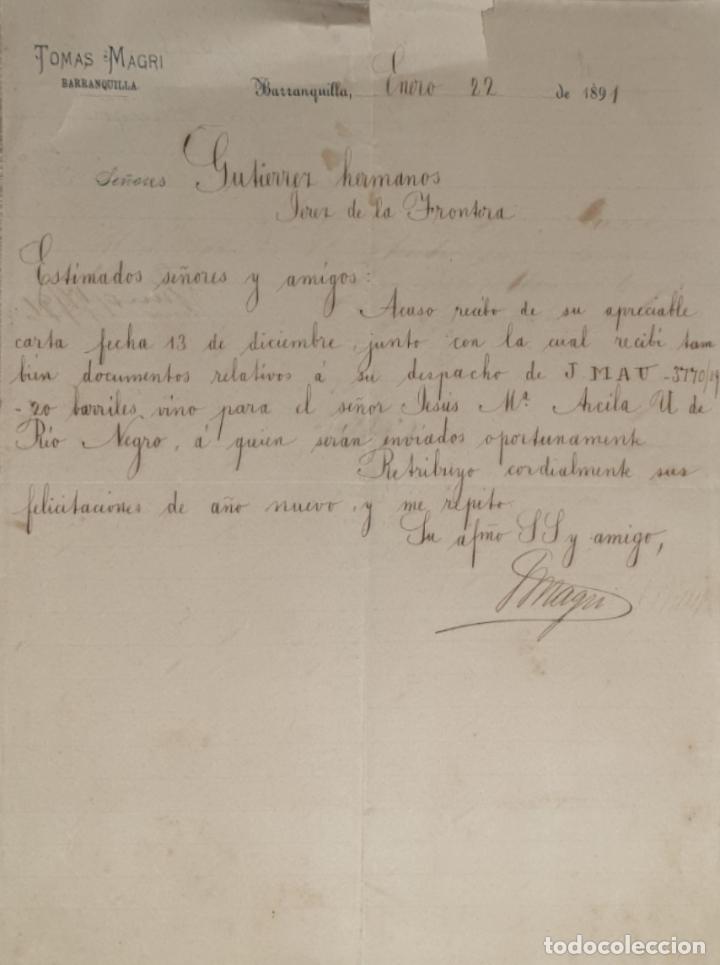 TOMAS MAGRI
BARRANQUILLA
Barranquilla, Enero 22 de 1891
Señores Gutierrez hermanos
Jerez de la Frontera
Estimados señores y amigos:
Acuso recibo de su apreciable
carta fecha 13 de diciembre, junto con la cual recibí tam
bién documentos relativos á su despacho de J M A U -3770/19
-20 barriles vino para el señor Jesús Mª Arcila U de
Río Negro, á quien serán enviados oportunamente
Retribuyo cordialmente sus
felicitaciones de año nuevo, y me repito
Su afmo SS y amigo,
TMagri
todocoleccion